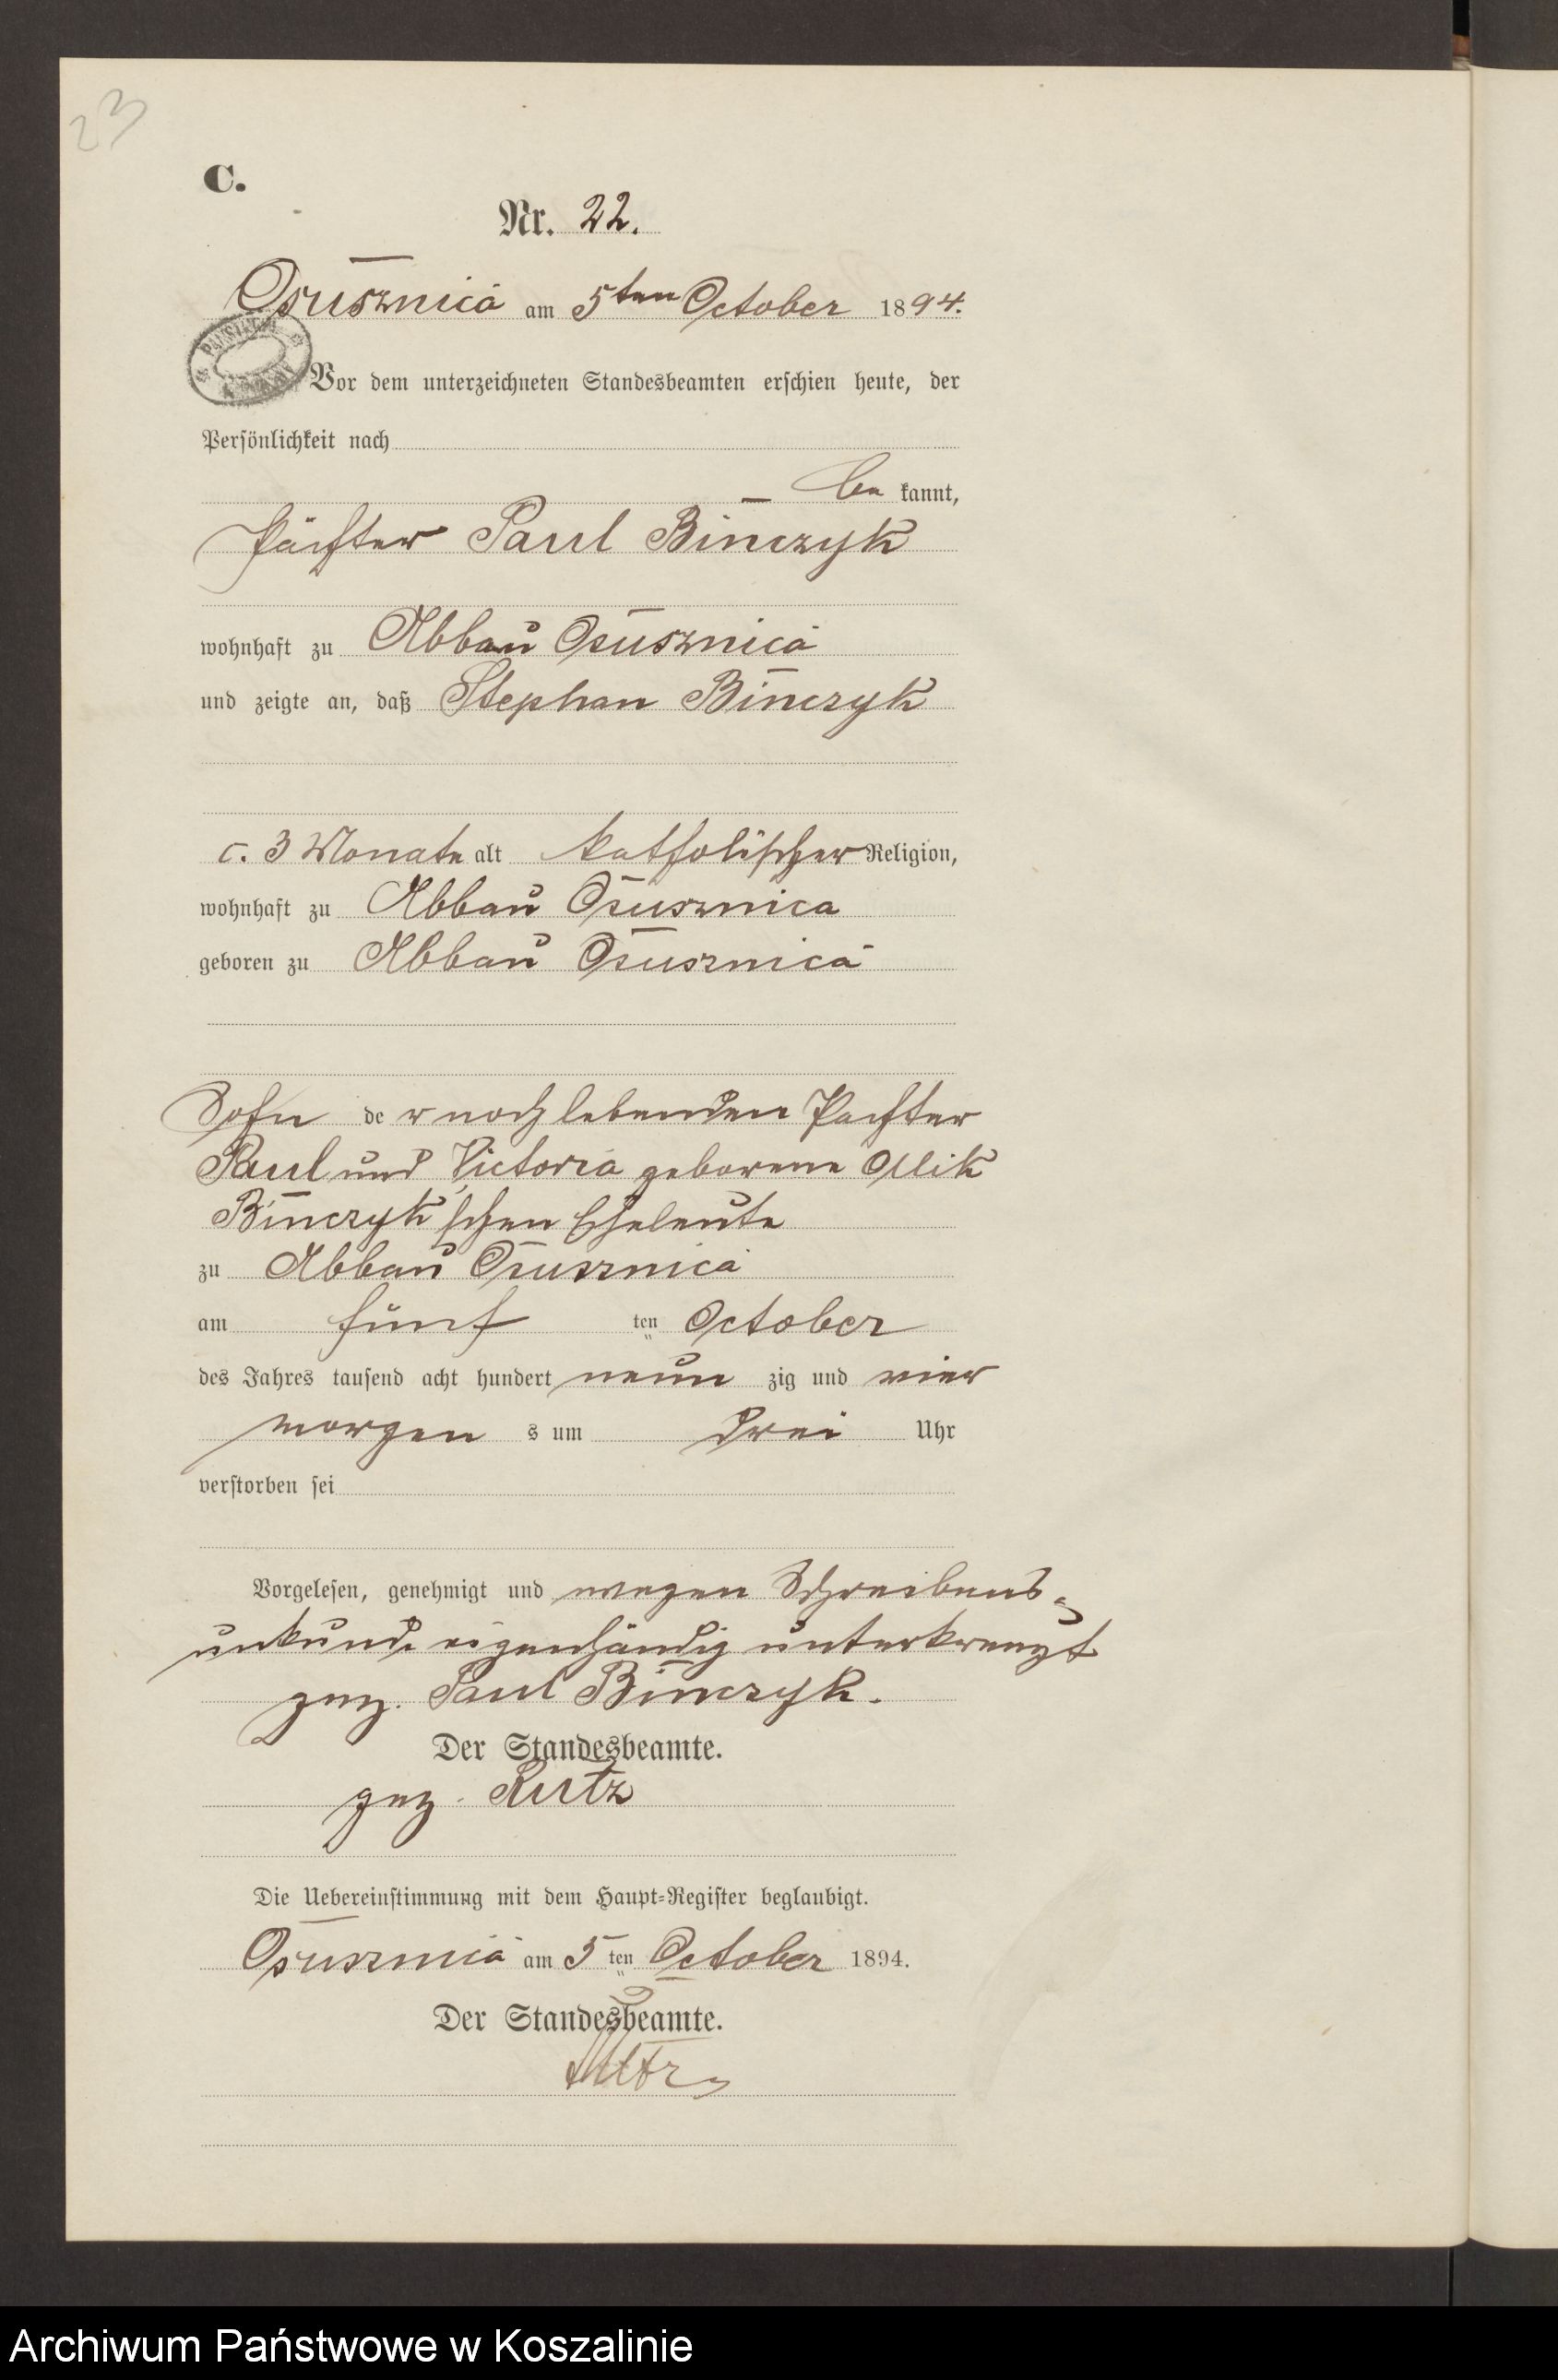 23
C.
Nr. 22.
Osusznica am 5ten October 1894.
Vor dem unterzeichneten Standesbeamten erschien heute, der
Persönlichkeit nach
be kannt,
Pächter Paul Binczyk
wohnhaft zu Abbau Osusznica
und zeigte an, daß Stephan Binczyk
c. 3 Monate alt katholischer Religion,
wohnhaft zu Abbau Osusznica
geboren zu Abbau Osusznica
Sohn de r noch lebenden Pächter
Paul und Victoria geborene
Binczyk'schen Eheleute
zu Abbau Osusznica
am fünf ten October
des Jahres tausend acht hundert neun zig und vier
morgen s um drei Uhr
verstorben sei
Vorgelesen, genehmigt und wegen Schreibens-
unkunde eigenhändig unterkreuzt
gez. Paul Binczyk.
Der Standesbeamte.
gez. Rutz
Die Uebereinstimmung mit dem Haupt-Register beglaubigt.
Osusznica am 5 ten October 1894.
Der Standesbeamte.
Rutz
Archiwum Państwowe w Koszalinie